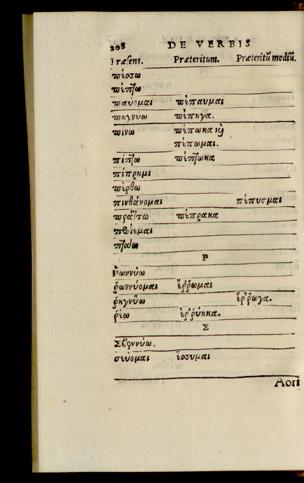 208 DE VERBIS
Præsens. Præteritum. Præteritũ mediũ.
παύομαι πέπαυμαι
πηγνύω πέπηγα.
πίνω πέπωκα καὶ
πέπωμαι.
πέπτωκα
πίπρημι
πέρθω
πυνθάνομαι πέπυσμαι
πράττω πέπρακα
Ρ
Ῥωννύω
ῥωννύομαι ἔῤῥωμαι
ῥηγνύω ἔῤῥωγα.
ῥέω ἐῤῥύηκα.
Σ
Σβεννύω.
σεύομαι ἐσσυμαι
Aori